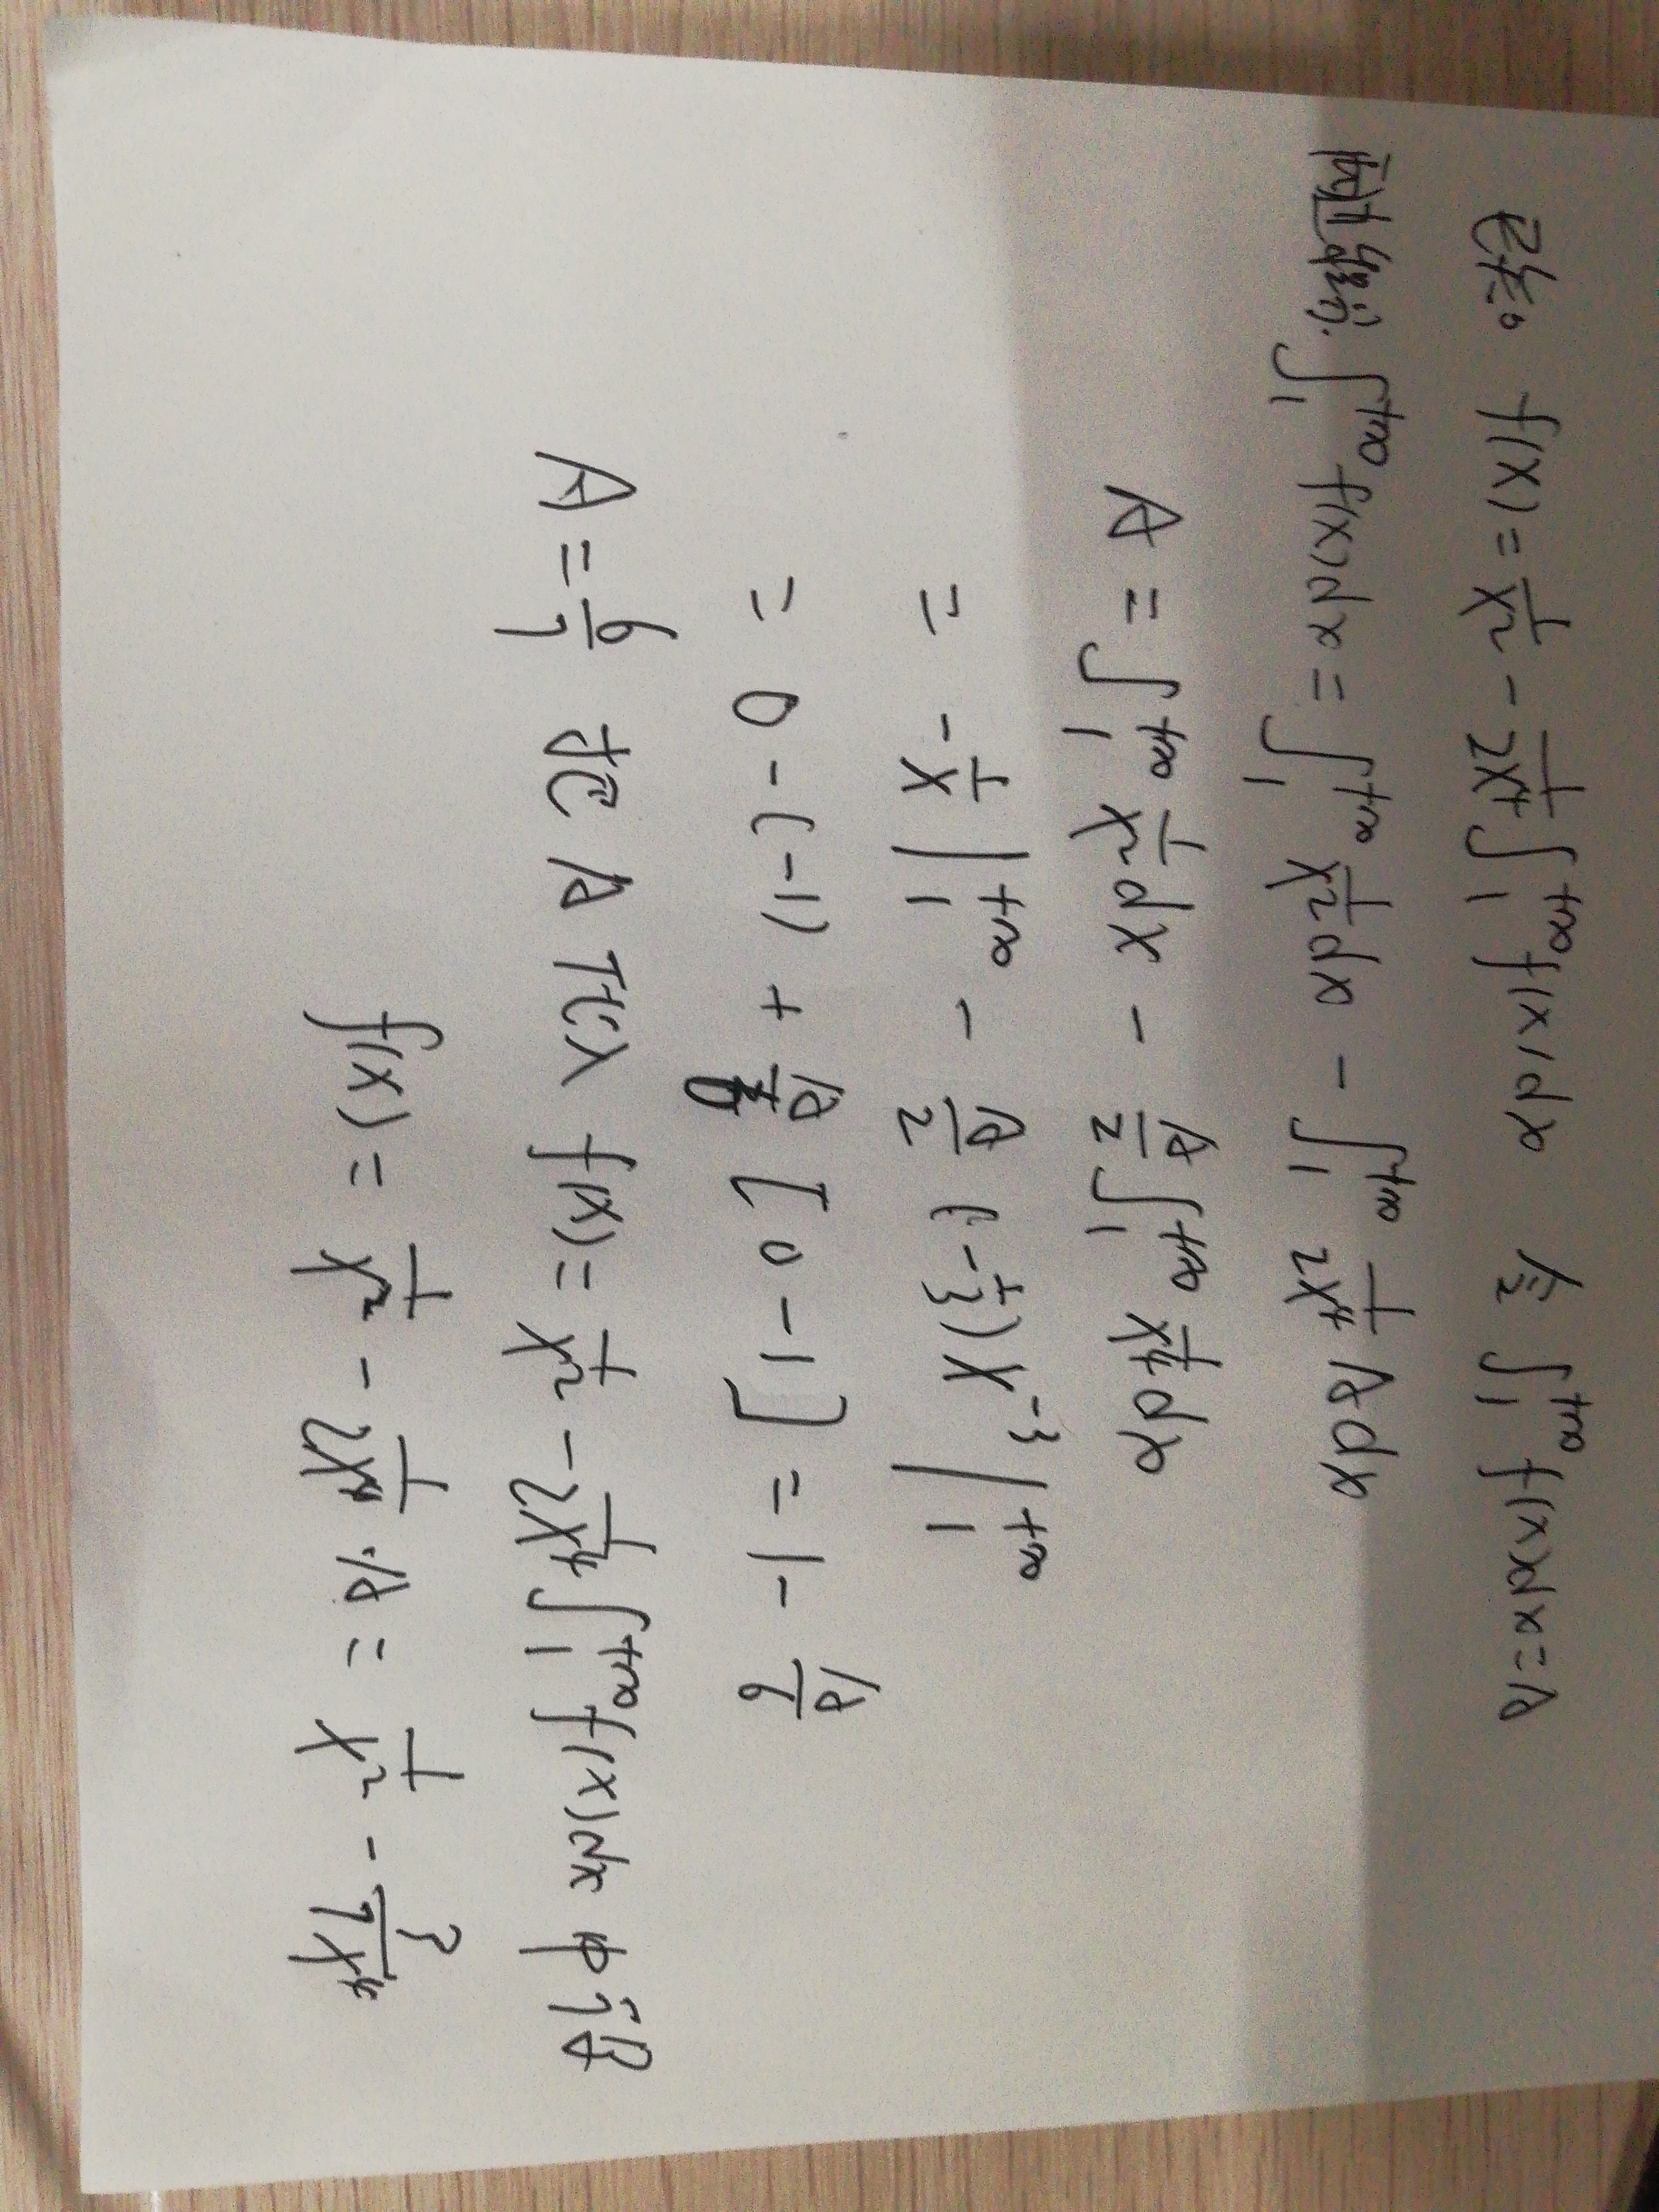 已知: f(x) = \frac{1}{x²} - \frac{1}{2x⁴} ∫_1^{+∞} f(x)dx 设 ∫_1^{+∞} f(x)dx = A
两边积分. ∫_1^{+∞} f(x)dx = ∫_1^{+∞} \frac{1}{x²} dx - ∫_1^{+∞} \frac{1}{2x⁴} A dx
A = ∫_1^{+∞} \frac{1}{x²} dx - \frac{A}{2} ∫_1^{+∞} \frac{1}{x⁴} dx
= -\frac{1}{x} |_1^{+∞} - \frac{A}{2} · (-\frac{1}{3}) x^{-3} |_1^{+∞}
= 0 - (-1) + \frac{A}{6} [0 - 1] = 1 - \frac{A}{6}
A = \frac{6}{7} 把 A 代入 f(x) = \frac{1}{x²} - \frac{1}{2x⁴} ∫_1^{+∞} f(x)dx 中得
f(x) = \frac{1}{x²} - \frac{1}{2x⁴} · A = \frac{1}{x²} - \frac{3}{7x⁴}